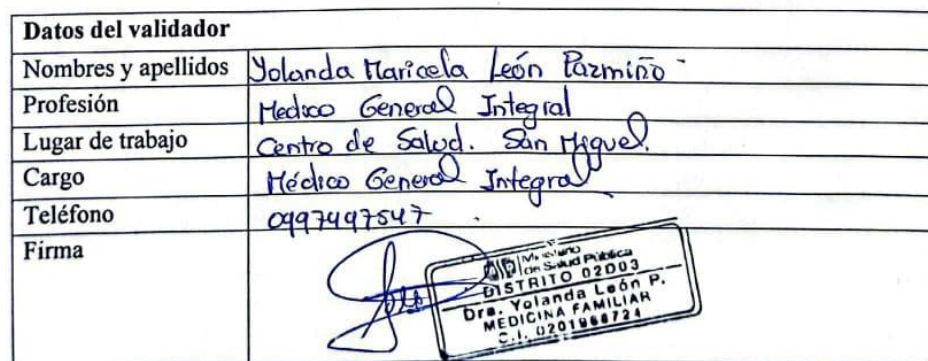 Datos del validador
Nombres y apellidos Yolanda Maricela León Pazmiño
Profesión Medico General Integral
Lugar de trabajo Centro de Salud. San Miguel.
Cargo Médico General Integral
Teléfono 0997497547
Firma
Ministerio
de Salud Pública
DISTRITO 02D03
Dra. Yolanda León P.
MEDICINA FAMILIAR
C.I. 0201988724